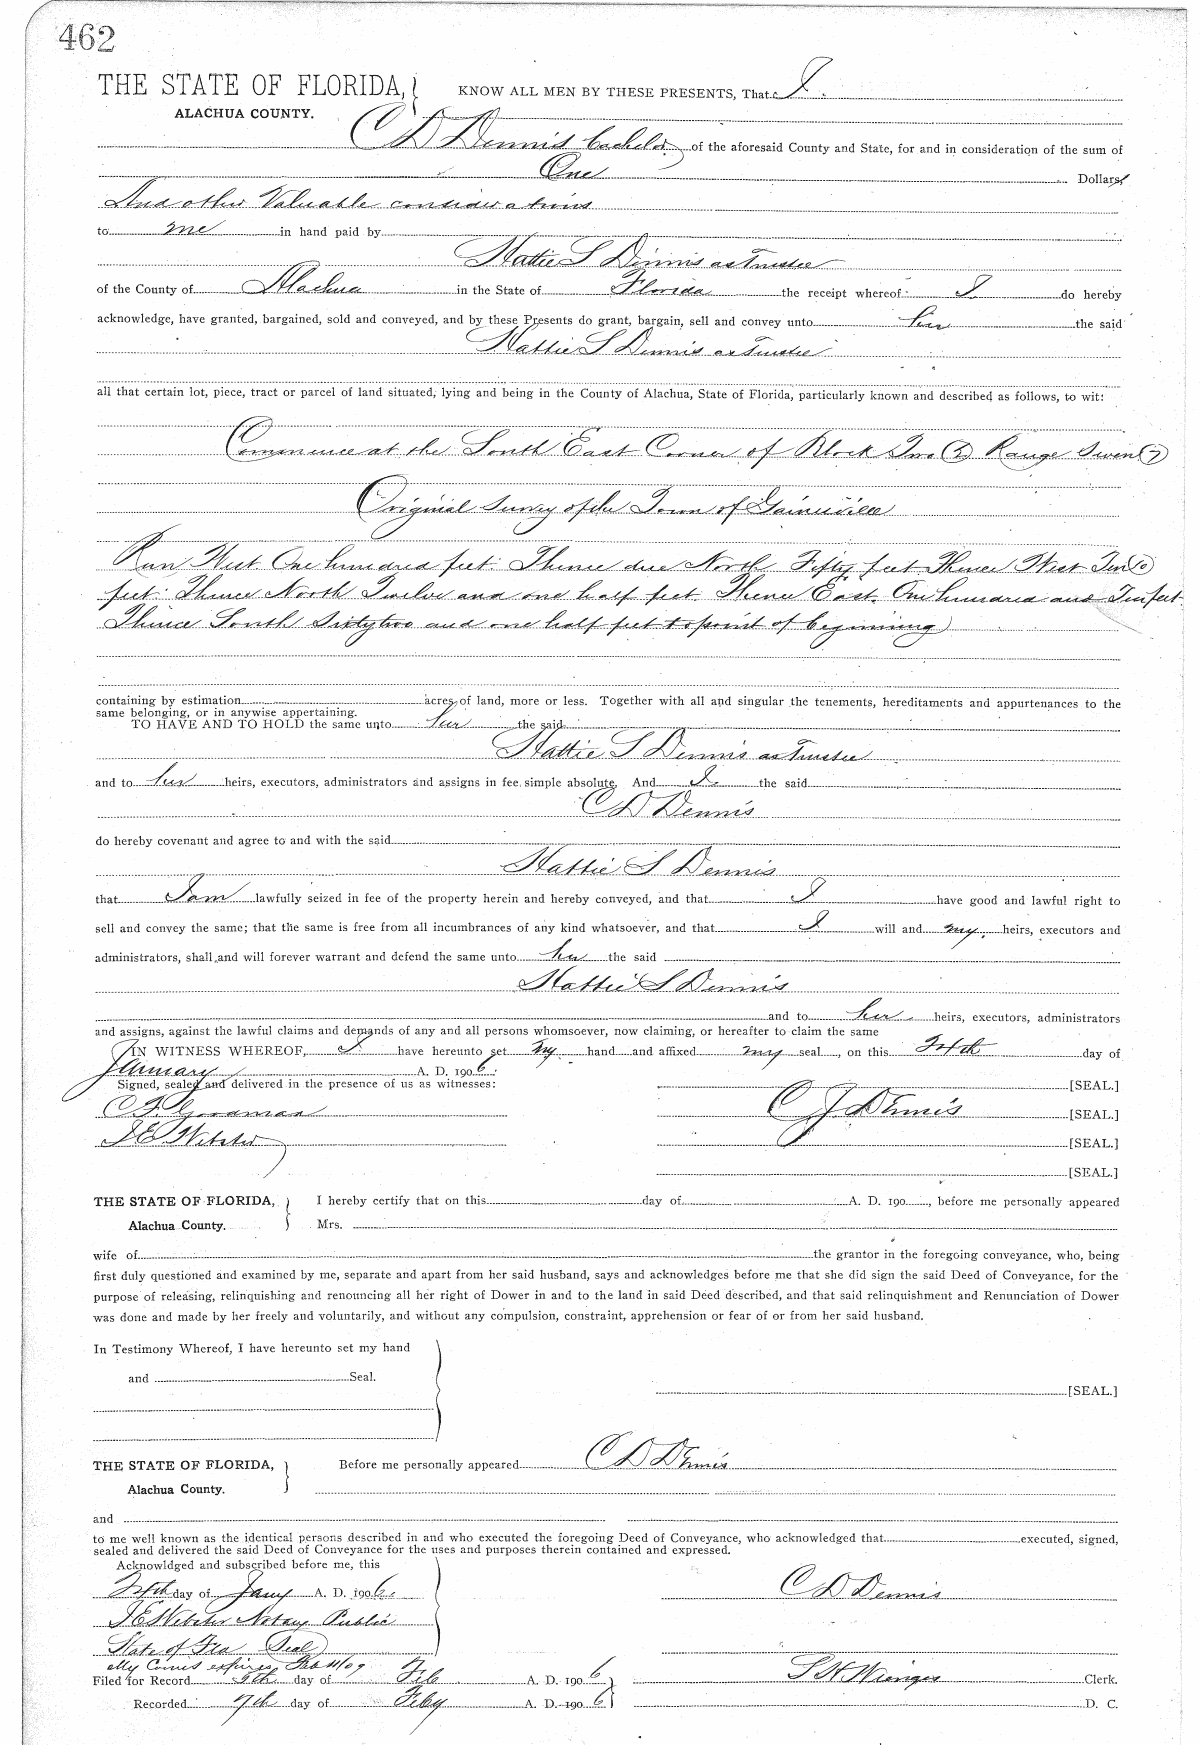 462
THE STATE OF FLORIDA,
ALACHUA COUNTY.
KNOW ALL MEN BY THESE PRESENTS, That I
C D Dennis bachelor of the aforesaid County and State, for and in consideration of the sum of
One Dollars
And other Valuable considerations
to me in hand paid by
Hattie S Dennis as Trustee
of the County of Alachua in the State of Florida the receipt whereof I do hereby
acknowledge, have granted, bargained, sold and conveyed, and by these Presents do grant, bargain, sell and convey unto her the said
Hattie S Dennis as Trustee
all that certain lot, piece, tract or parcel of land situated, lying and being in the County of Alachua, State of Florida, particularly known and described as follows, to wit:
Commence at the South East Corner of Block Two (2) Range Seven (7)
Original Survey of the Town of Gainesville
Run West One hundred feet. Thence due North Fifty feet Thence West Ten 10
feet. Thence North Twelve and one half feet Thence East. One hundred and Ten feet
Thence South Sixty two and one half feet to point of beginning
containing by estimation acres of land, more or less. Together with all and singular the tenements, hereditaments and appurtenances to the
same belonging, or in anywise appertaining.
TO HAVE AND TO HOLD the same unto her the said
Hattie S Dennis as Trustee
and to her heirs, executors, administrators and assigns in fee simple absolute. And I the said
C D Dennis
do hereby covenant and agree to and with the said
Hattie S Dennis
that I am lawfully seized in fee of the property herein and hereby conveyed, and that I have good and lawful right to
sell and convey the same; that the same is free from all incumbrances of any kind whatsoever, and that I will and my heirs, executors and
administrators, shall and will forever warrant and defend the same unto her the said
Hattie S Dennis
and to her heirs, executors, administrators
and assigns, against the lawful claims and demands of any and all persons whomsoever, now claiming, or hereafter to claim the same
IN WITNESS WHEREOF, I have hereunto set my hand and affixed my seal, on this 24th day of
January A. D. 1906.
Signed, sealed and delivered in the presence of us as witnesses: [SEAL.]
C F Goodman C D Dennis [SEAL.]
J E Webster [SEAL.]
[SEAL.]
THE STATE OF FLORIDA, I hereby certify that on this day of A. D. 190 , before me personally appeared
Alachua County. Mrs.
wife of the grantor in the foregoing conveyance, who, being
first duly questioned and examined by me, separate and apart from her said husband, says and acknowledges before me that she did sign the said Deed of Conveyance, for the
purpose of releasing, relinquishing and renouncing all her right of Dower in and to the land in said Deed described, and that said relinquishment and Renunciation of Dower
was done and made by her freely and voluntarily, and without any compulsion, constraint, apprehension or fear of or from her said husband.
In Testimony Whereof, I have hereunto set my hand
and Seal.
[SEAL.]
THE STATE OF FLORIDA, Before me personally appeared C D Dennis
Alachua County.
and
to me well known as the identical persons described in and who executed the foregoing Deed of Conveyance, who acknowledged that executed, signed,
sealed and delivered the said Deed of Conveyance for the uses and purposes therein contained and expressed.
Acknowldged and subscribed before me, this
24th day of Jany A. D. 1906. C D Dennis
J E Webster Notary Public
State of Fla Seal
My Comis expires Feb 11/09
Filed for Record 5th day of Feb A. D. 1906 S H Wienges Clerk.
Recorded 7th day of Feby A. D. 1906 D. C.